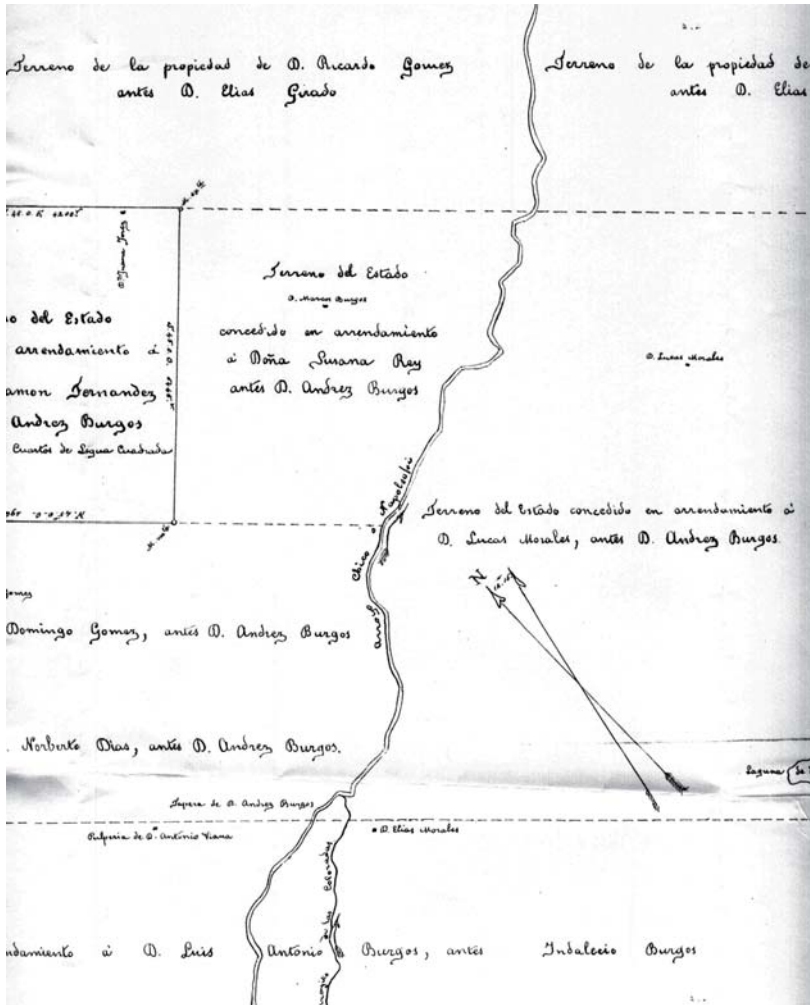 Terreno de la propiedad de D. Ricardo Gomez
antes D. Elias Girado
Terreno de la propiedad de
antes D. Elias
Terreno del Estado
D. Marcos Burgos
concedido en arrendamiento
á Doña Susana Rey
antes D. Andrez Burgos
o del Estado
arrendamiento á
amon Fernandez
Andrez Burgos
Cuartos de Légua Cuadrada
D. Lucas Morales
Arroyo Chico o Napaleofú
Terreno del Estado concedido en arrendamiento á
D. Lucas Morales, antes D. Andrez Burgos.
N
Gomez
Domingo Gomez, antes D. Andrez Burgos
. Norberto Dias, antes D. Andrez Burgos.
Laguna de
Tapera de D. Andrez Burgos
Pulperia de D. António Viana
D. Elias Morales
de los Colorados
ndamiento á D. Luis António Burgos, antes Indalecio Burgos